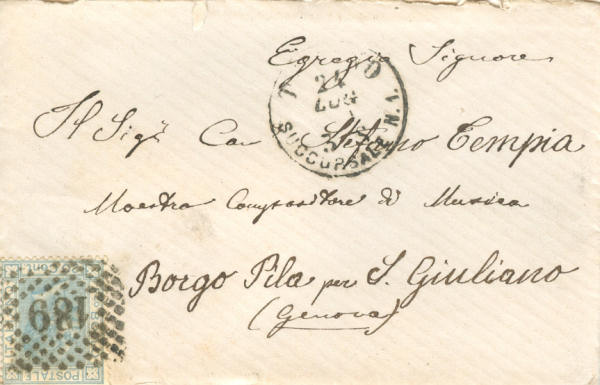 Egregio Signore
24
LUG
SUCCURSALE N. 1.
Il Sigr Cav Stefano Tempia
Maestro Compositore di Musica
Borgo Pila per S. Giuliano
(Genova)
189
POSTALE